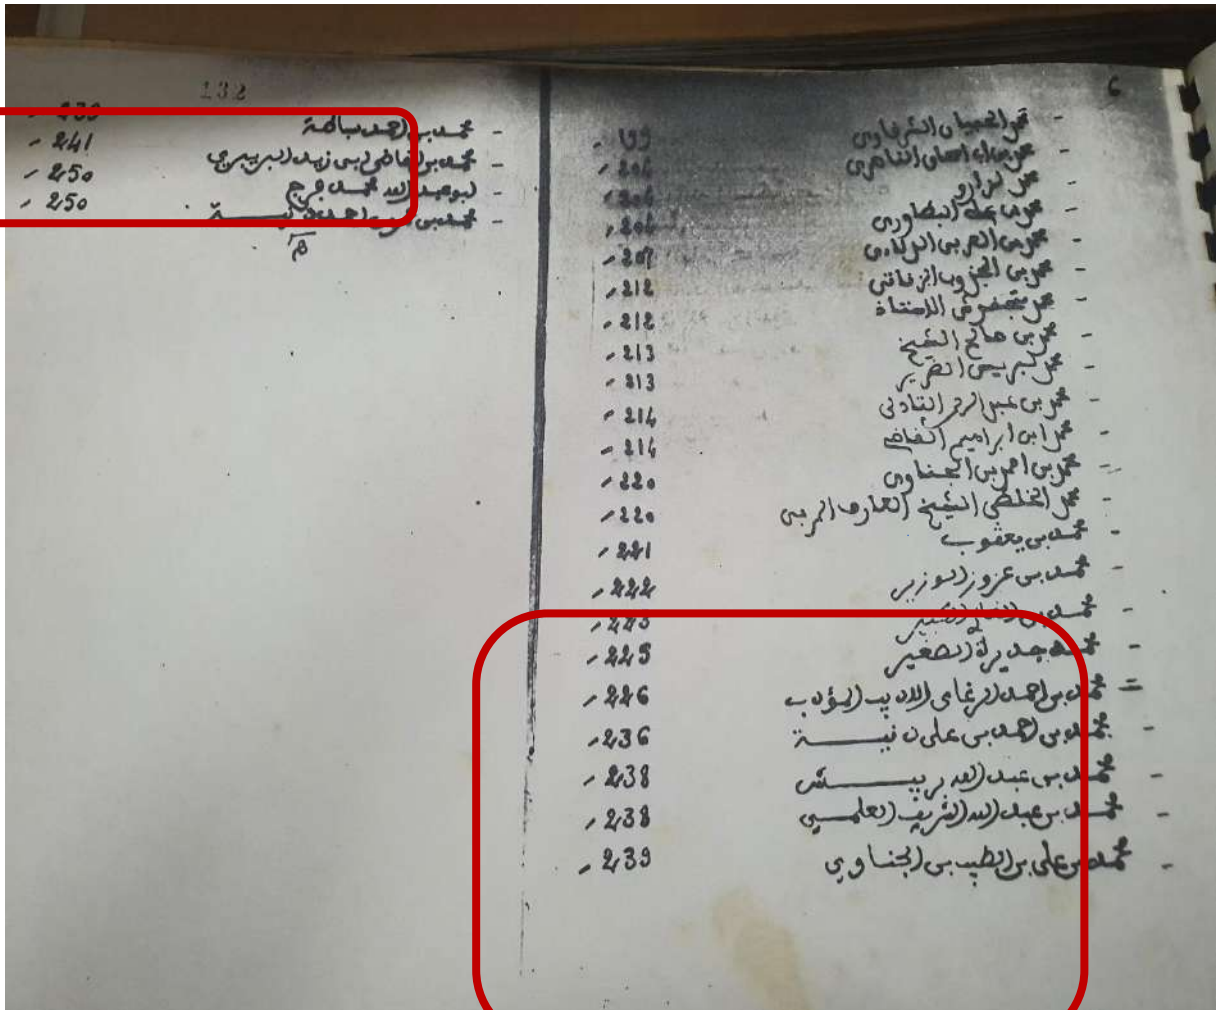 6
- محمد الحسان الشرقاوي 199
- محمد بن ابي اسحاق التاهري 204
- محمد 204
- محمد بن عطه البطاوري 204
- محمد بن العربي 209
- محمد بن المجذوب الزقاقي 212
- محمد الاستاذ 212
- محمد بن صالح الشيخ 213
- محمد الضرير 213
- محمد بن عبد الرحمن التادلي 214
- محمد ابن ابراهيم القاضي 214
- محمد بن احمد بن الجناوي 220
- محمد الخلطي الشيخ العارف المربي 220
- محمد بن يعقوب 221
- محمد بن عزوز الوزير 222
- محمد بن 223
- محمد جديرة الصغير 225
- محمد بن احمد الرغاي الاديب المؤدب 226
- محمد بن احمد بن علي دنية 236
- محمد بن عبد الله بريش 238
- محمد بن عبد الله الشريف العلمي 238
- محمد بن علي بن الطيب بن الجناوي 239
132
- محمد بن احمد 239
- محمد بن القاضي بن زيد البريبري 241
- ابو عبد الله محمد فرج 250
- محمد بن احمد دنية 250